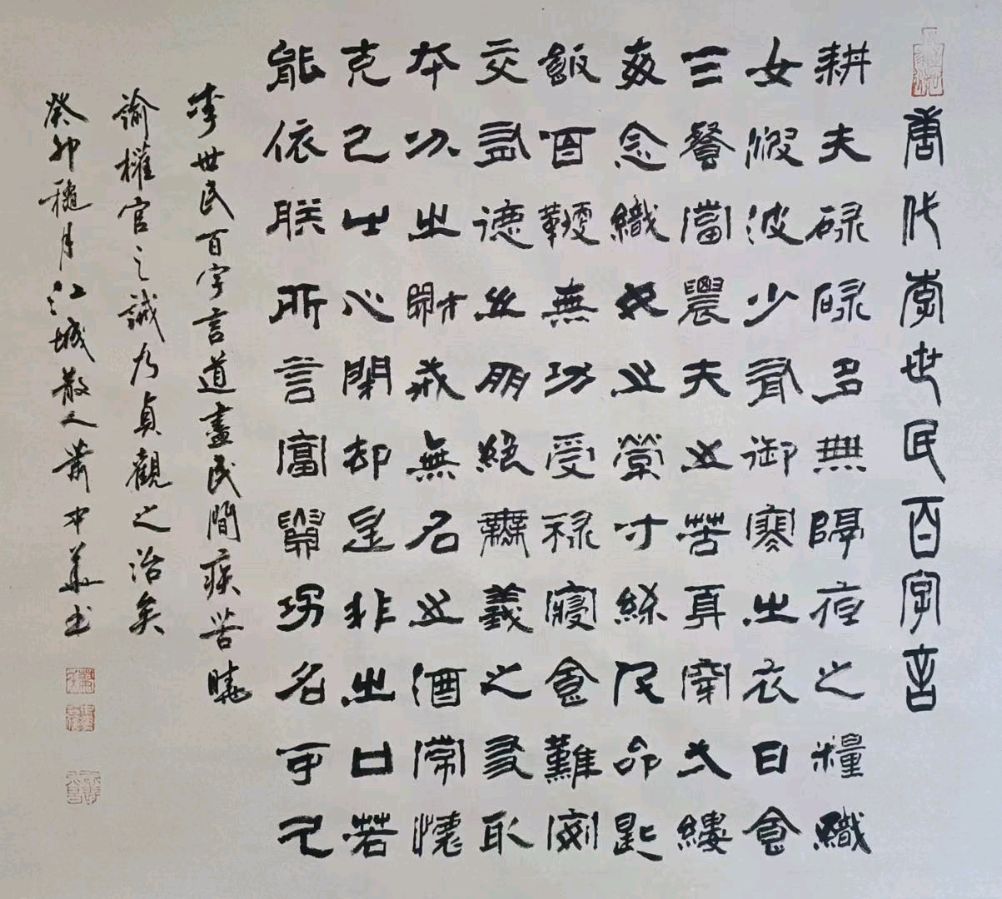 唐代李世民百字言
耕夫碌碌多無隔宿之糧織
女波波少有御寒之衣日食
三餐當農夫之苦身穿一縷
每念織女之勞寸絲千命匙
飯百鞭無功受祿寢食難安
交有德之朋絕無義之友取
本分之財戒無名之酒常懷
克己之心閉却是非之口若
能依朕所言富貴功名可久
李世民百字言道盡民間疾苦曉
諭權官之誡乃貞觀之治矣
癸卯穐月江城散人蕭中華書